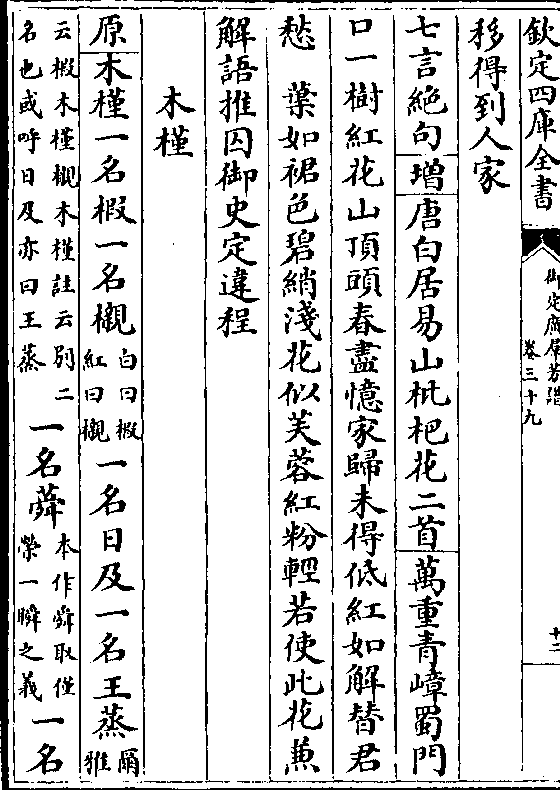 欽定四庫全書
御定廣羣芳譜
卷三十九
十二
移得到人家
七言絶句增唐白居易山枇杷花二首萬重青嶂蜀門
口一樹紅花山頂頭春盡憶家歸未得低紅如解替君
愁　葉如裙色碧綃淺花似芙蓉紅粉輕若使此花兼
解語推囚御史定違程
木槿
原木槿一名椵一名櫬白曰椵紅曰櫬一名日及一名王蒸爾雅
云椵木槿櫬木槿註云别二名也或呼日及亦曰王蒸一名蕣本作舜取僅榮一瞬之義一名